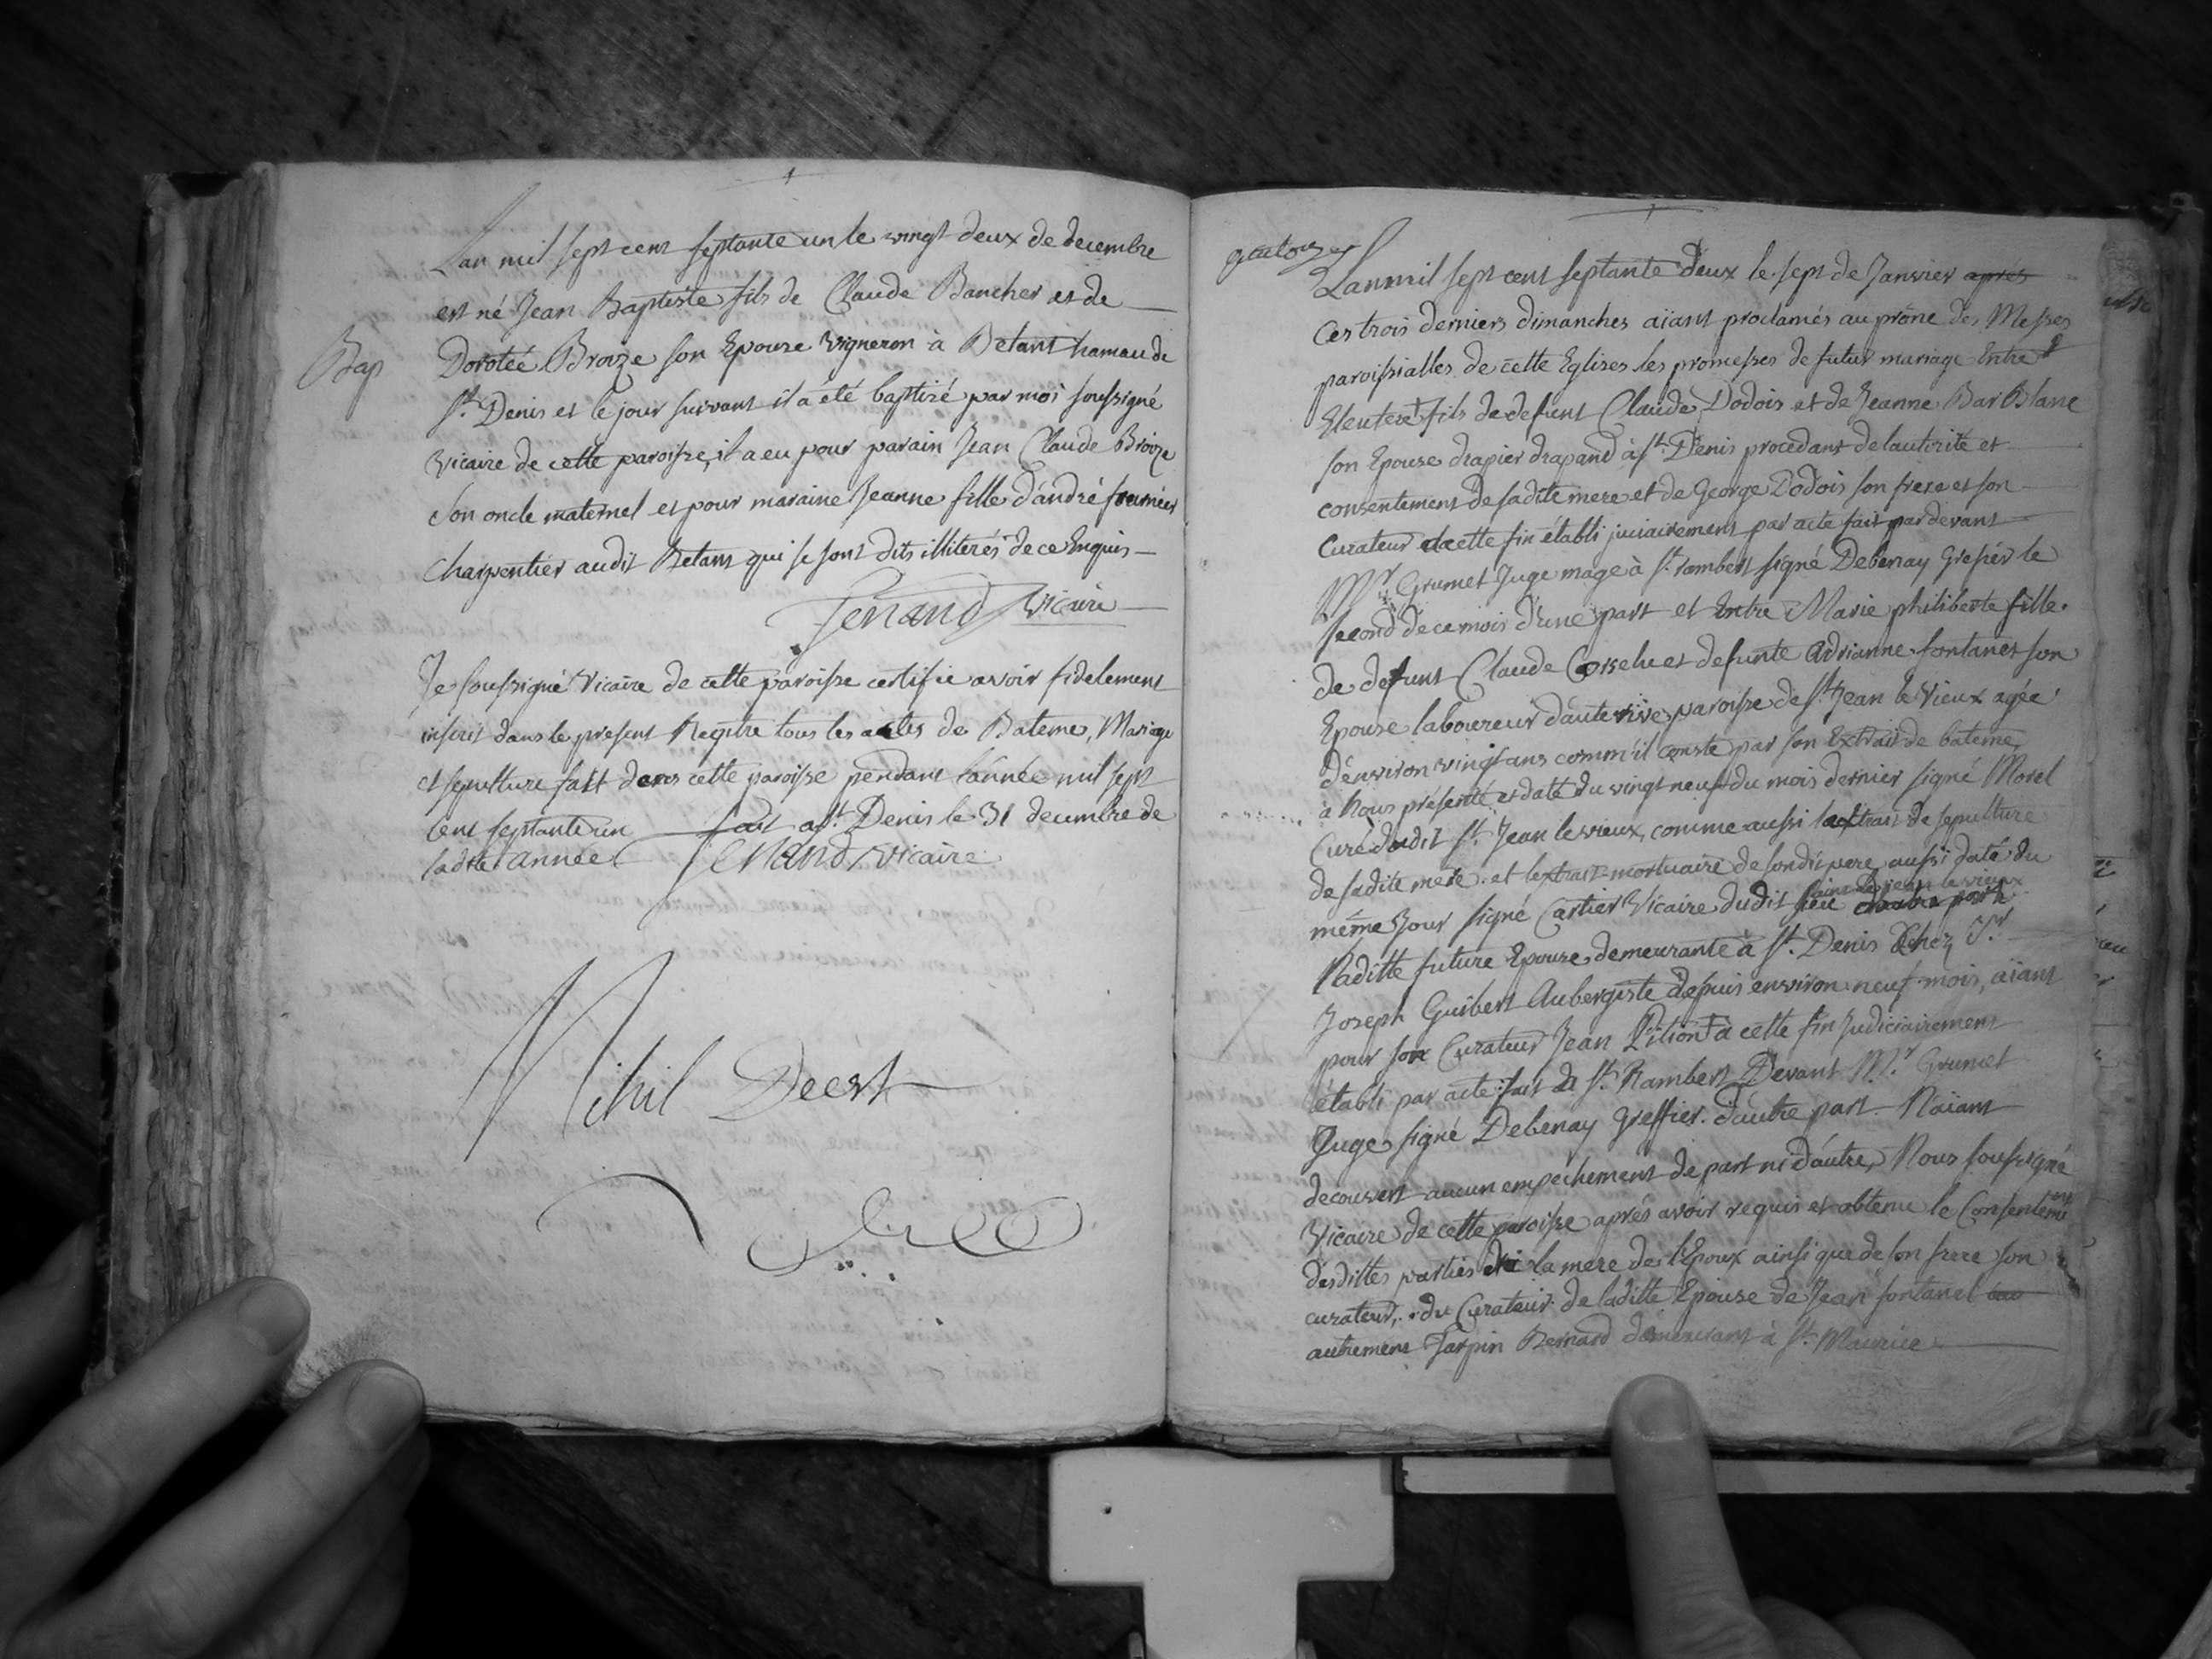 Lan mil sept cent septante un le vingt deux de decembre
est né Jean Baptiste fils de Claude Bancher et de
Bap
Dorotée Broize son Epouse vigneron à Betant hamau de
St. Denis et le jour suivant il a été baptizé par moi soussigné
vicaire de cette paroisse, il a eu pour parain Jean Claude Broize
son oncle maternel et pour maraine Jeanne fille d'andré fournier
charpentier audit Betant qui se sont dits illiterés de ce Enquis
Genand vicaire
Je soussigné Vicaire de cette paroisse certifie avoir fidelement
inscrit dans le present Registre tous les actes de Bateme, Mariage
et sepulture fait dans cette paroisse pendant l'année mil sept
cent septante un fait a St. Denis le 31 decembre de
ladite année Genand vicaire
Nihil Deest
Lan mil sept cent septante deux le sept de Janvier après
Ces trois derniers dimanches aïant proclamés au prône des Messes
paroissialles de cette Eglises les promesses de futur mariage Entre
Eleutere fils de defunt Claude Dodois et de Jeanne Bar Blanc
son Epouse drapier drapand à St. Denis procedant de lautorité et
consentement de sadite mere et de George Dodois son frere et son
Curateur a cette fin établi juciairement par acte fait pardevant
Mr. Grumet Juge mage à St. rambert signé Debenay Grefier le
second de ce mois d'une part et Entre Marie philiberte fille
de defunt Claude et defunte Adrianne fontanet son
Epouse laboureur dauterive paroisse de St. Jean le Vieux agée
d'environ vingt ans comm'il conste par son Extrait de bateme
a Nous présenté et daté du vingt neuf du mois dernier signé Morel
Curé dudit St. Jean le vieux, comme aussi lextrait de sepulture
de sadite mere et lextrait mortuaire de sondit pere aussi daté du
même Jour signé Cartier Vicaire dudit saint jean le vieux
laditte future Epouse demeurante à St. Denis Chez Sr.
Joseph Guibert Aubergiste depuis environ neuf mois, aïant
pour son Curateur Jean Pition à cette fin Judiciairement
établi par acte fait à St. Rambert Devant Mr. Grumet
Juge signé Debenay Greffier d'autre part N'aïant
decouvert aucun empechement de part ni d'autre, Nous soussigné
Vicaire de cette paroisse aprés avoir requis et obtenu le Consentemt
desdittes parties de la mere de l'Epoux ainsi que de son frere son
curateur, du Curateur de laditte Epouse de Jean fontanel
autrement Jarpin Bernard demeurant à St. Maurice